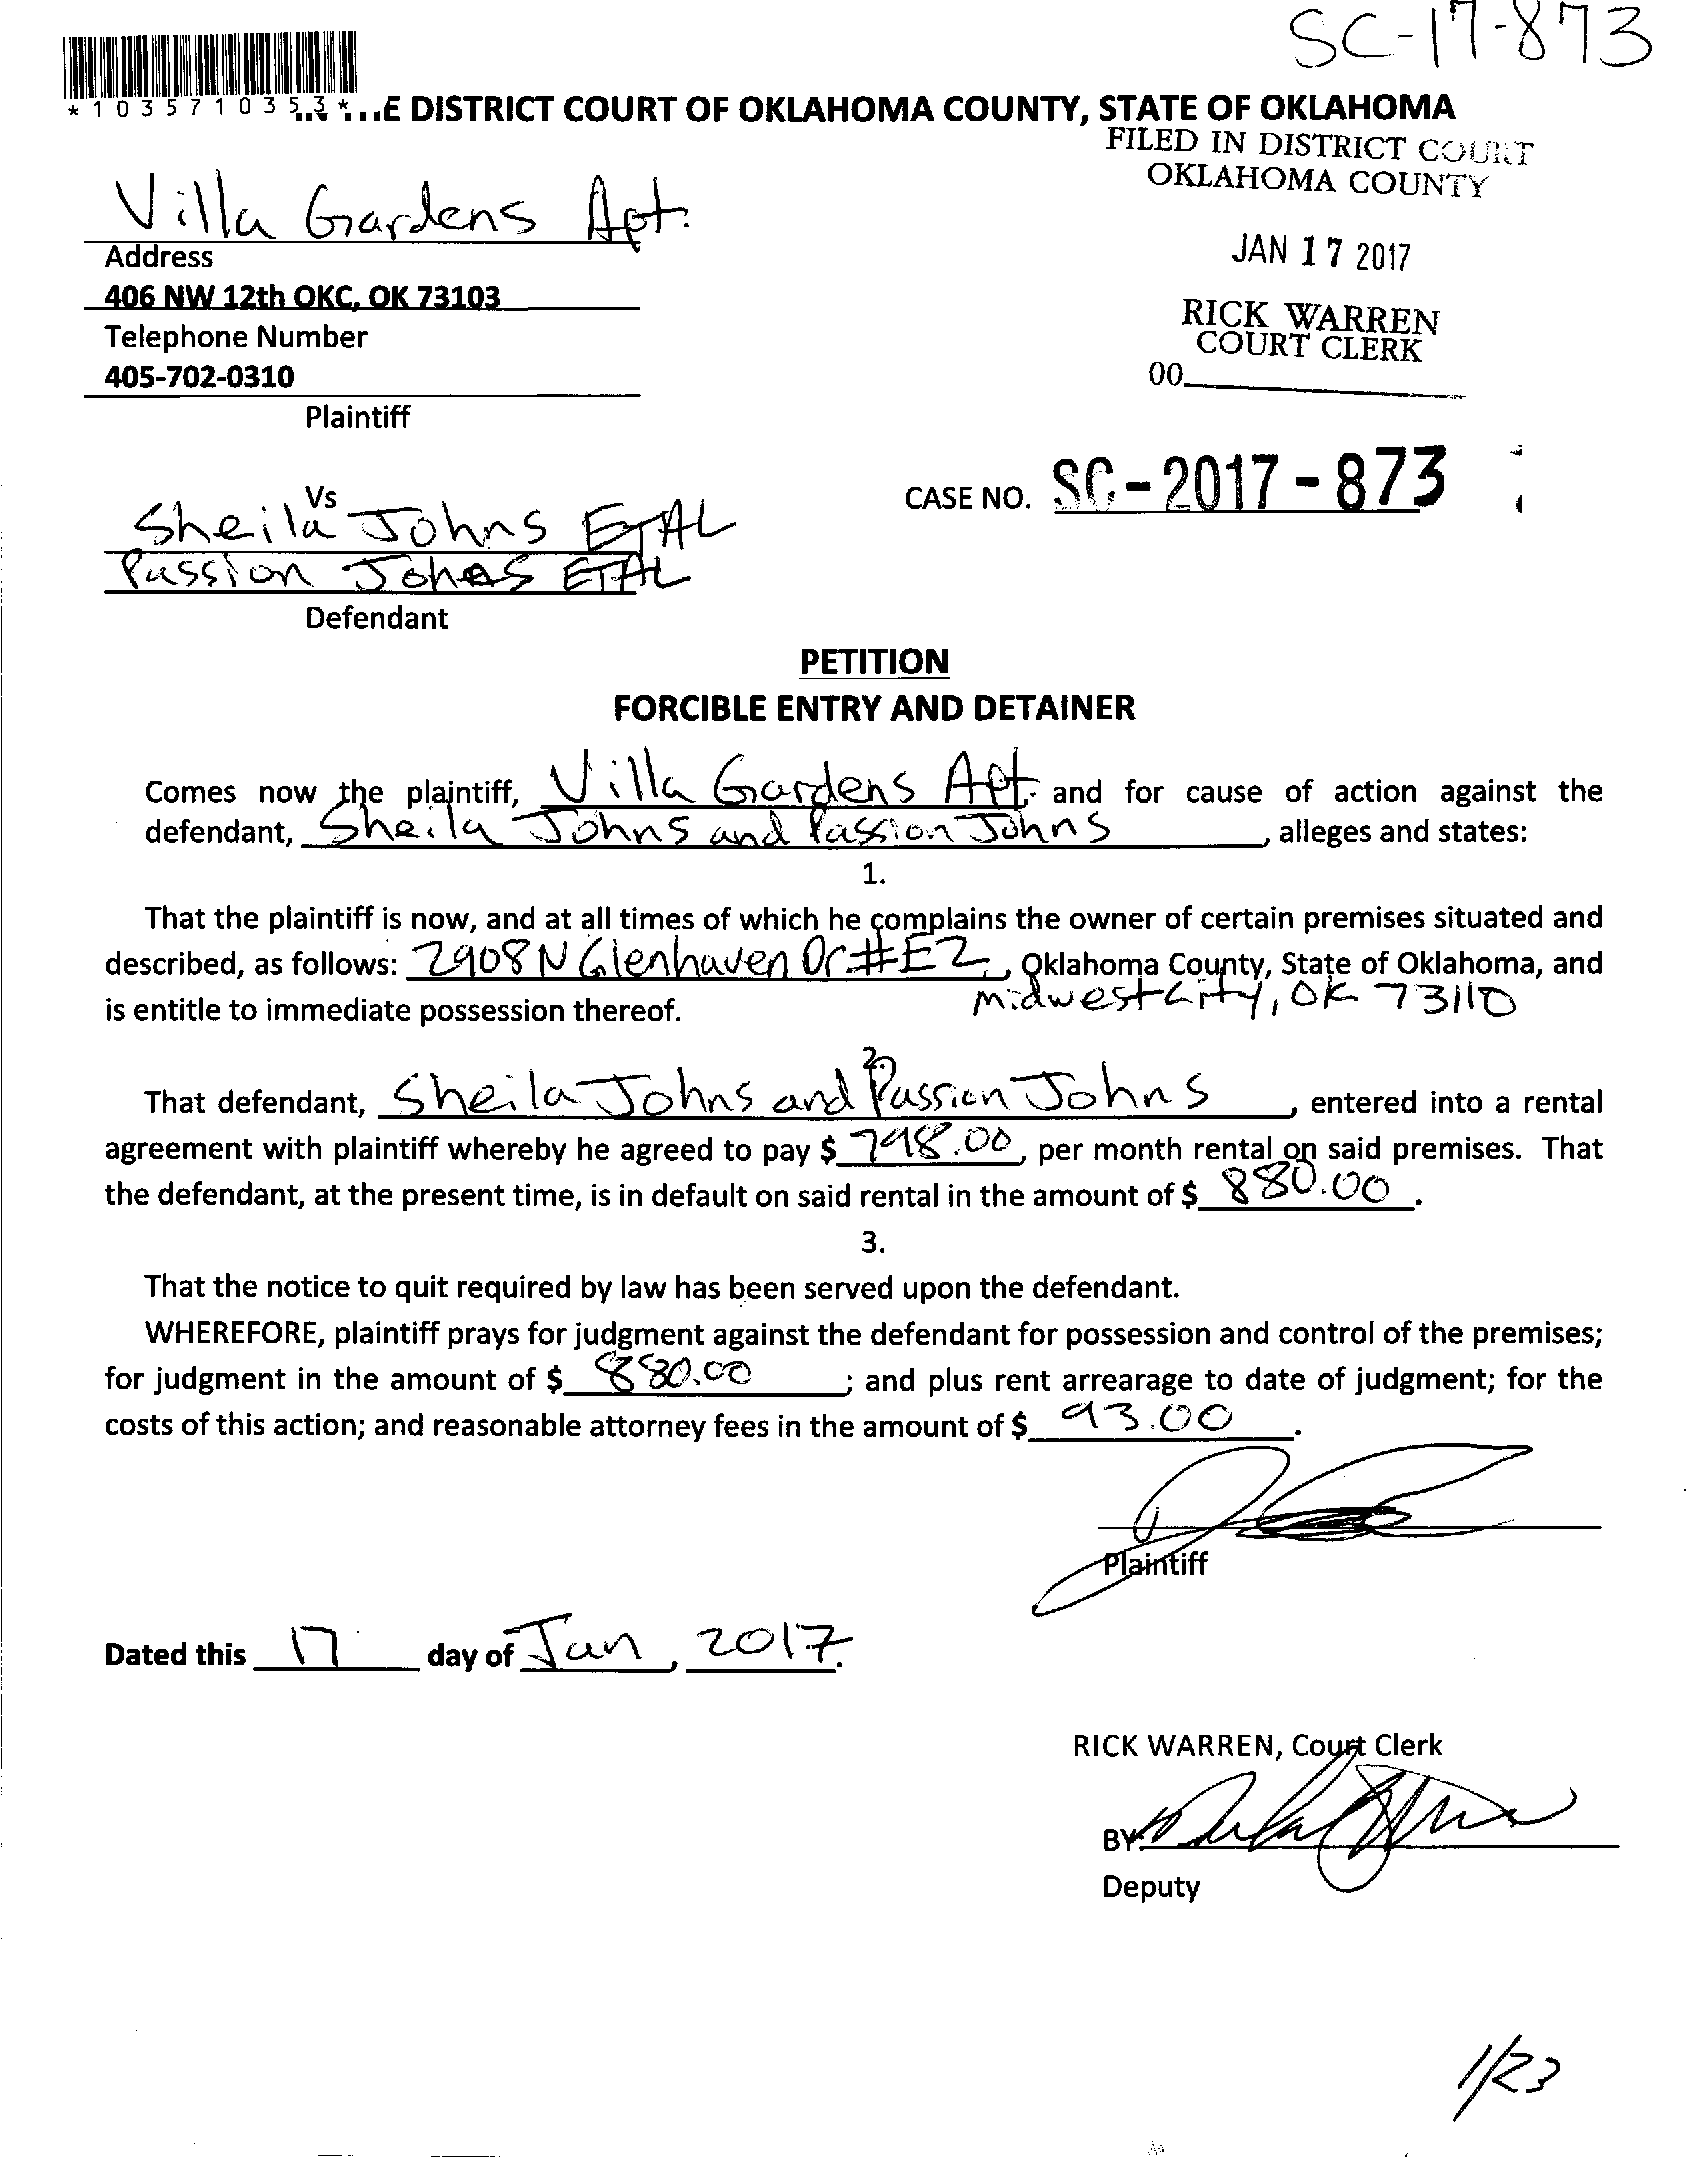 SC-17-873
*1035710353*
E DISTRICT COURT OF OKLAHOMA COUNTY, STATE OF OKLAHOMA
FILED IN DISTRICT COURT
OKLAHOMA COUNTY
JAN 17 2017
RICK WARREN
COURT CLERK
00
Villa Gardens Apt.
Address
406 NW 12th OKC, OK 73103
Telephone Number
405-702-0310
Plaintiff
Vs
CASE NO. SC-2017-873
Sheila Johns ETAL
Passion Johns ETAL
Defendant
PETITION
FORCIBLE ENTRY AND DETAINER
Comes now the plaintiff, Villa Gardens Apt. and for cause of action against the
defendant, Sheila Johns and Passion Johns, alleges and states:
1.
That the plaintiff is now, and at all times of which he complains the owner of certain premises situated and
described, as follows: 2908 N Glenhaven Dr #E2, Oklahoma County, State of Oklahoma, and
Midwest City, OK 73110
is entitle to immediate possession thereof.
2.
That defendant, Sheila Johns and Passion Johns, entered into a rental
agreement with plaintiff whereby he agreed to pay $ 798.00, per month rental on said premises. That
the defendant, at the present time, is in default on said rental in the amount of $ 880.00.
3.
That the notice to quit required by law has been served upon the defendant.
WHEREFORE, plaintiff prays for judgment against the defendant for possession and control of the premises;
for judgment in the amount of $ 880.00; and plus rent arrearage to date of judgment; for the
costs of this action; and reasonable attorney fees in the amount of $ 93.00.
Plaintiff
Dated this 17 day of Jan, 2017.
RICK WARREN, Court Clerk
BY
Deputy
1/23